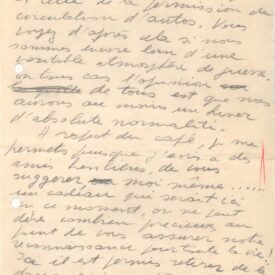 et celle de la permission de
circulation d'autos. Vous
voyez d'après cela si nous
sommes encore loin d'une
véritable atmosphère de guerre.
en tous cas l'opinion
de tous est que nous
aurons au moins un hiver
d'absolute normalité.
A respect du café, je me
permets puisque j'écris a des
ames hentières, de vous
suggerer moi même .....
un cadeau qui serait ici
en ce moment, on ne peut
dire combien précieux au
point de vous assurer notre
reconnaissance pour toute la vie,
Ici il est permis retirer de la